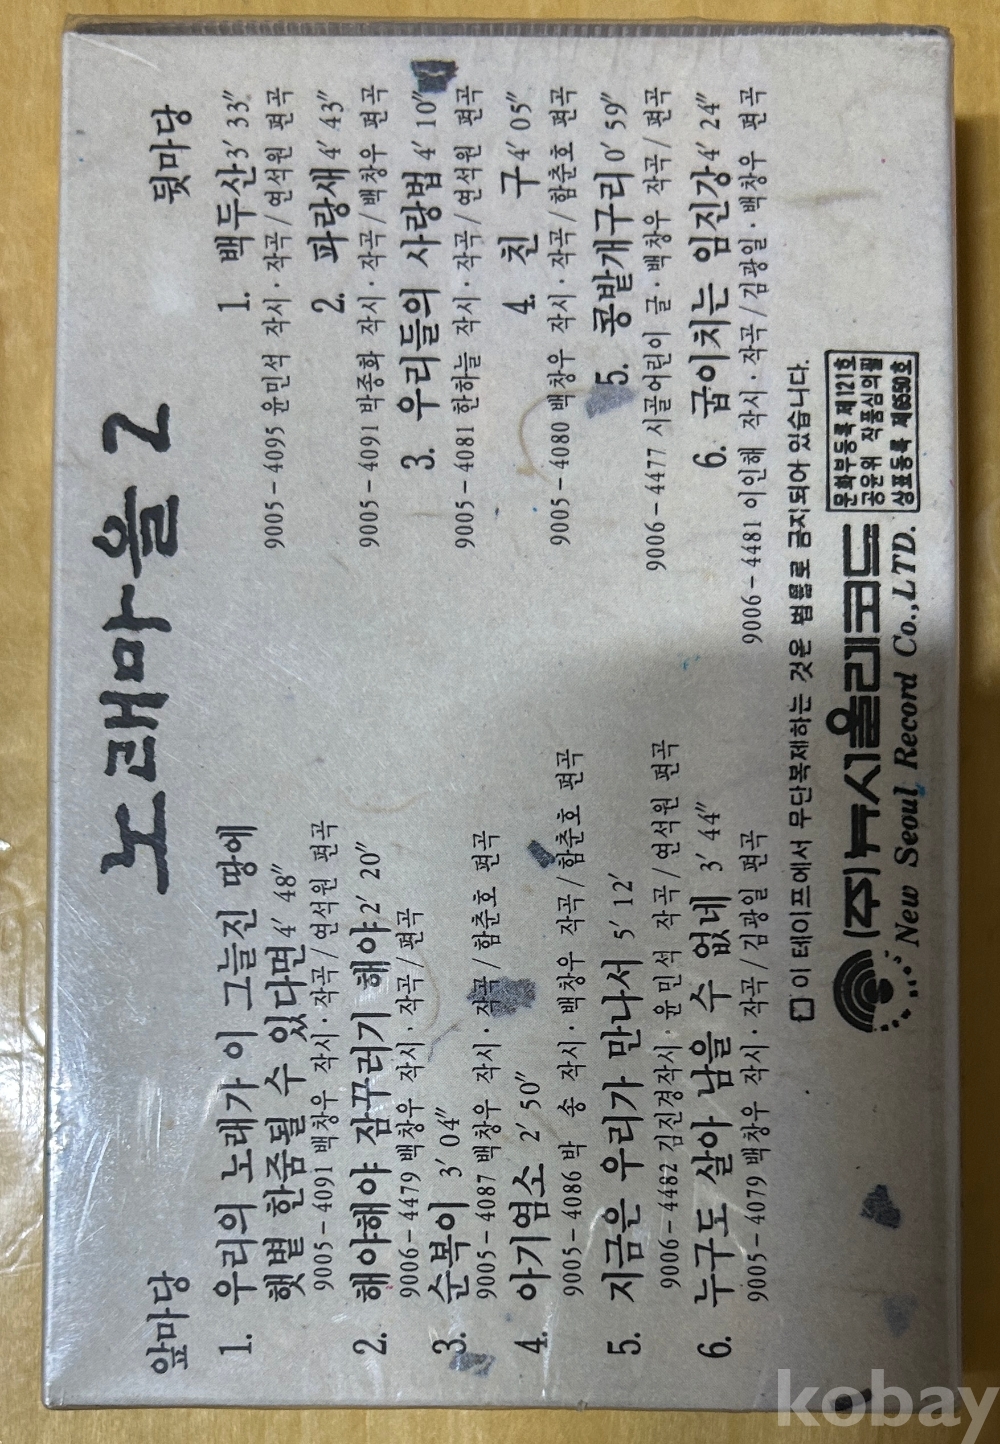 노래마을 2
앞마당
1. 우리의 노래가 이 그늘진 땅에
햇볕 한줌될 수 있다면 4′ 48″
9005-4091 백창우 작시·작곡/연석원 편곡
2. 해야해야 잠꾸러기 해야 2′ 20″
9006-4479 백창우 작시·작곡/편곡
3. 순복이 3′ 04″
9005-4087 백창우 작시·작곡/함춘호 편곡
4. 아기염소 2′ 50″
9005-4086 박 송 작시·백창우 작곡/함춘호 편곡
5. 지금은 우리가 만나서 5′ 12′
9006-4482 김진경작시·윤민석 작곡/연석원 편곡
6. 누구도 살아 남을 수 없네 3′ 44″
9005-4079 백창우 작시·작곡/김광일 편곡
뒷마당
1. 백두산 3′ 33″
9005-4095 윤민석 작시·작곡/연석원 편곡
2. 파랑새 4′ 43″
9005-4091 박종화 작시·작곡/백창우 편곡
3. 우리들의 사랑법 4′ 10″
9005-4081 한하늘 작시·작곡/연석원 편곡
4. 친 구 4′ 05″
9005-4080 백창우 작시·작곡/함춘호 편곡
5. 콩밭개구리 0′ 59″
9006-4477 시골어린이 글·백창우 작곡/편곡
6. 굽이치는 임진강 4′ 24″
9006-4481 이인해 작시·작곡/김광일·백창우 편곡
이 테이프에서 무단복제하는 것은 법률로 금지되어 있습니다.
(주)뉴서울레코드
New Seoul Record Co.,LTD.
문화부등록 제121호
공윤위 작품심의필
상표등록 제6550호
kobay